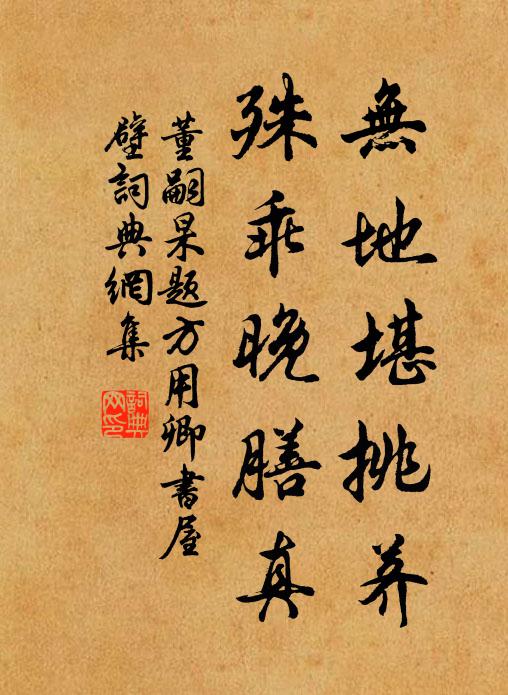 無地堪挑荠
殊乖晚膳真
董嗣杲題方用卿書屋
壁詞典網集
詞典
网印